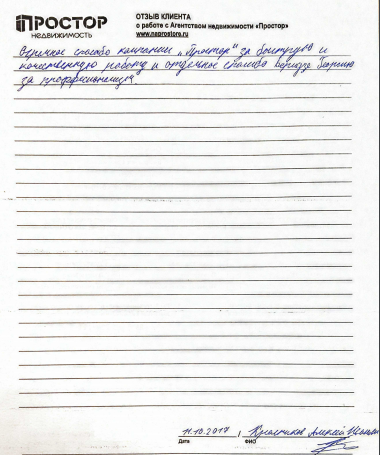 ПРОСТОР
НЕДВИЖИМОСТЬ
ОТЗЫВ КЛИЕНТА
о работе с Агентством недвижимости «Простор»
www.naprostore.ru
Огромное спасибо компании „Простор" за быструю и
качественную работу и отдельное спасибо Георгию
за профессионализм.
11.10.2017
Алексей
Дата ФИО